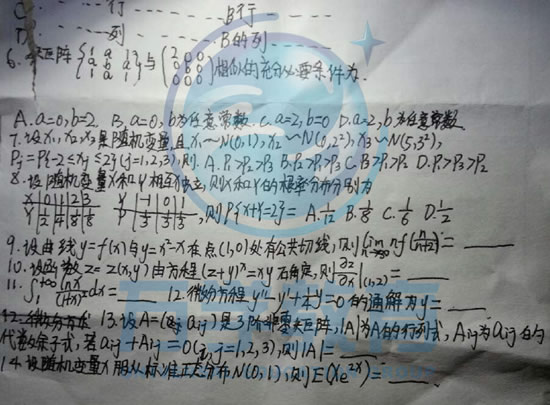 C. 行 B行
D. 列 B的列
6. 矩阵 {1 a 1 a b a 1 a 1} 与 {2 0 0 0 b 0 0 0 0} 相似的充分必要条件为.
A. a=0, b=2 B. a=0, b为任意常数 C. a=2, b=0 D. a=2, b为任意常数
7. 设X₁, X₂, X₃是随机变量, 且X₁~N(0,1), X₂~N(0,2²), X₃~N(5,3²),
Pⱼ=P{-2≤xⱼ≤2}(j=1,2,3), 则. A. P₁>P₂>P₃ B. P₂>P₁>P₃ C. P₃>P₁>P₂ D. P₁>P₃>P₂
8. 设随机变量X和Y相互独立, 则X和Y的概率分布分别为
X 0 1 2 3 Y -1 0 1
P 1/2 1/4 1/8 1/8 P 1/3 1/3 1/3 , 则P{X+Y=2}= A. 1/12 B. 1/8 C. 1/6 D. 1/2
9. 设曲线y=f(x)与y=x²-x在点(1,0)处有公共切线, 则lim n→∞ nf(n/(n+2))=
10. 设函数z=z(x,y)由方程(z+y)ˣ=xy确定, 则∂z/∂x|(1,2)=
11. ∫₁^{+∞} lnx/(1+x)² dx= 12. 微分方程y''-y'+1/4y=0的通解为y=
13. 设A=(aᵢⱼ)是3阶非零矩阵, |A|为A的行列式, Aᵢⱼ为aᵢⱼ的
代数余子式, 若aᵢⱼ+Aᵢⱼ=0(i,j=1,2,3), 则|A|=
14. 设随机变量X服从标准正态分布N(0,1), 则E(Xe²ˣ)=